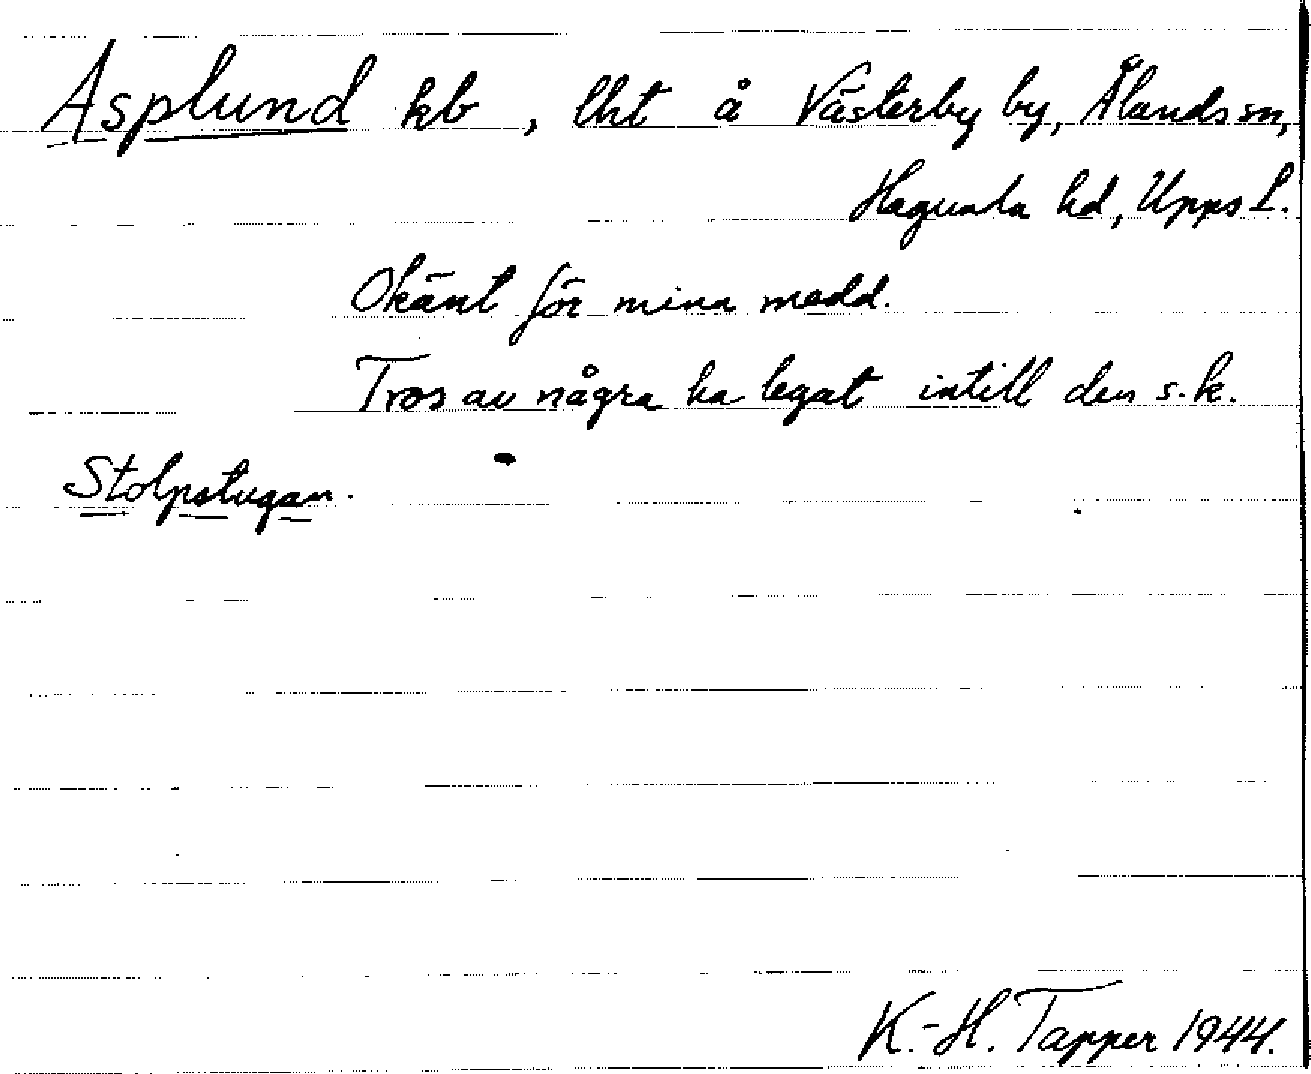 Asplund kb, lht å Västerby by, Ålands sn,
Hagunda hd, Upps l.
Okänt för mina medd.
Tros av några ha legat intill den s.k.
Stolpstugan.
K.-H. Tapper 1944.